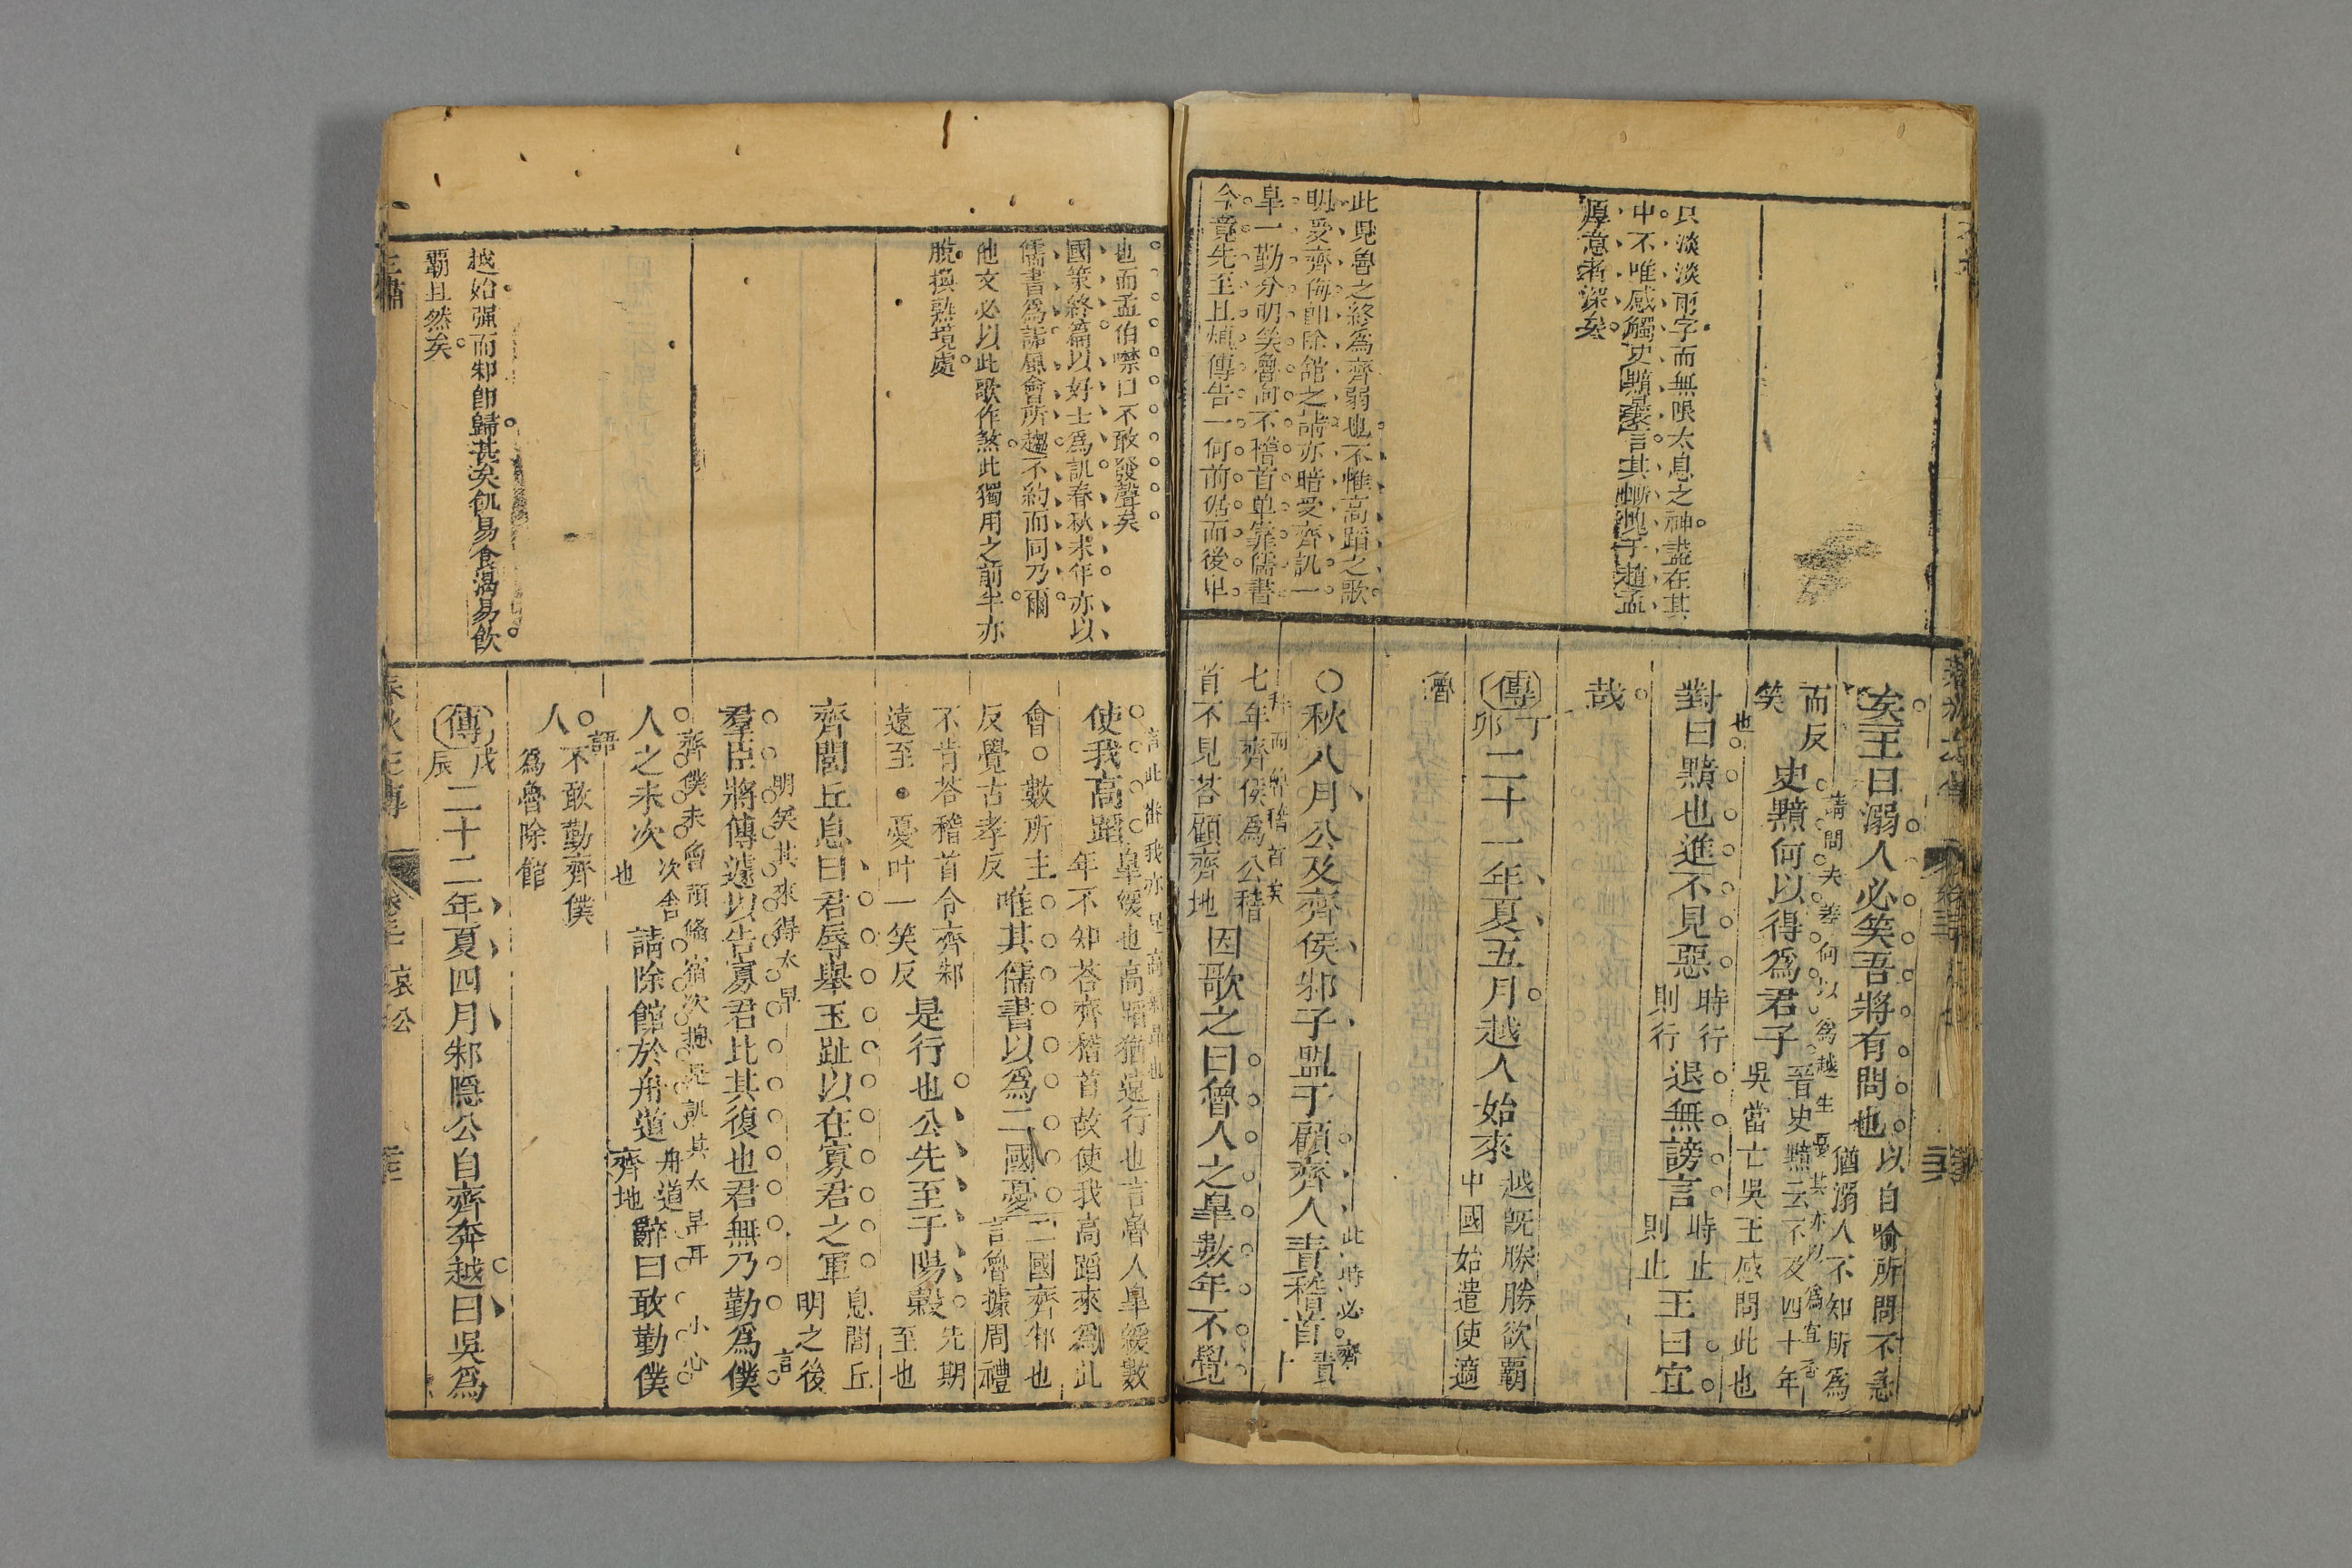 只淡淡兩字而無限太息之神盡在其
中不唯感觸史黯曩言其慚愧于趙孟
厚意者深矣
此見魯之終為齊弱也不惟高蹈之歌
明受齊侮即除館之請亦暗受齊訊一
皐一勤分明笑魯何不稽首單靠儒書
今竟先至且煩傳告一何前倨而後卑
矣王曰溺人必笑吾將有問也以自喻所問不急
猶溺人不知所為
而反
笑也
請問夫差何以為越生憂其亦以為宜否
史黯何以得為君子晉史黯云不及四十年
吳當亡吳王感問此也
對曰黯也進不見惡時行
則行退無謗言時止
則止王曰宜
哉
傳丁
卯二十一年夏五月越人始來越既勝勝欲霸
中國始遣使適
魯
此時必齊
○秋八月公及齊侯邾子盟于顧齊人責稽首責十
拜而鮮稽首矣
七年齊侯為公稽
首不見荅顧齊地因歌之曰魯人之皐數年不覺
也而孟伯噤口不敢發聲矣
國策終篇以好士為訊春秋末年亦以
儒書為諱風會所趨不約而同乃爾
他文必以此歌作煞此獨用之前半亦
脫換熟境處
越始强而邾即歸甚矣飢易食渴易飲
霸且然矣
使我高蹈皐緩也高蹈猶遠行也言魯人皐緩數
年不知荅齊稽首故使我高蹈來為此
會○數所主
反覺古孝反唯其儒書以為二國憂二國齊邾也
言魯據周禮
不肯荅稽首令齊邾
遠至●憂叶一笑反是行也公先至于陽穀先期
至也
齊閭丘息曰君辱舉玉趾以在寡君之軍息閭丘
明之後
明矣其來得太早
言
羣臣將傳遽以告寡君比其復也君無乃勤為僕
齊僕未會預備宿次摠是訊其太早耳
小心
人之未次次舍
也請除館於舟道舟道
齊地辭曰敢勤僕
語
人不敢勤齊僕
為魯除館
傳戊
辰二十二年夏四月邾隱公自齊奔越曰吳為
哀公